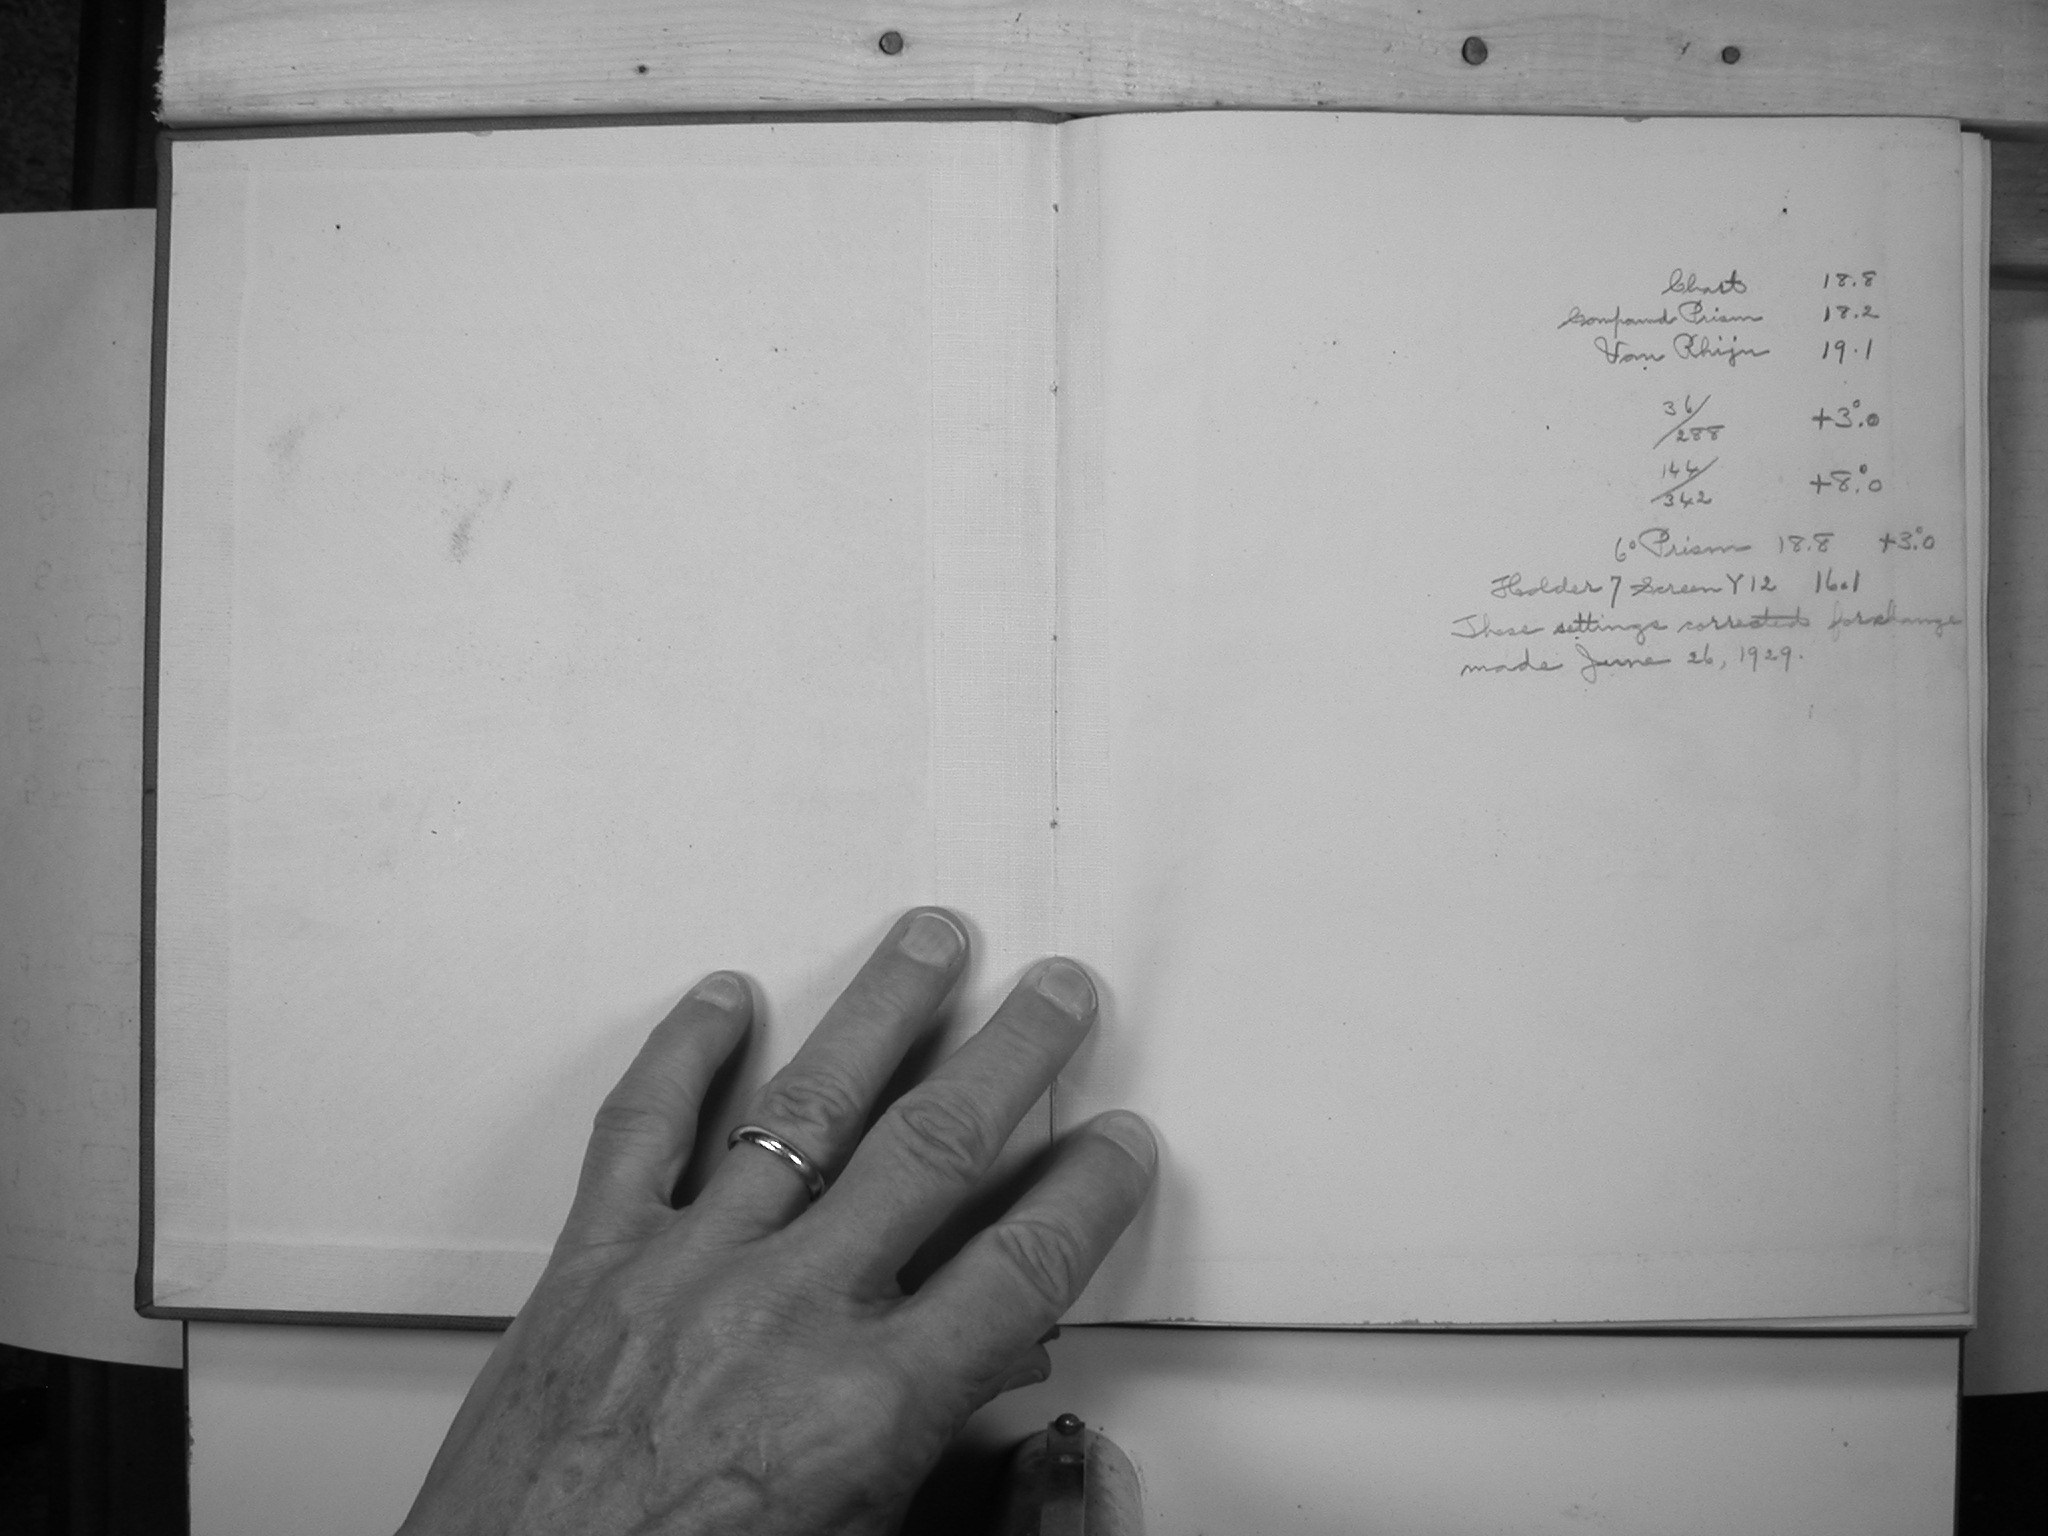 Chart 18.8
Compound Prism 18.2
Van Rhijn 19.1
36/288 +3°.0
144/342 +8°.0
6° Prism 18.8 +3°.0
Holder 7 Screen Y12 16.1
These settings corrected for change
made June 26, 1929.